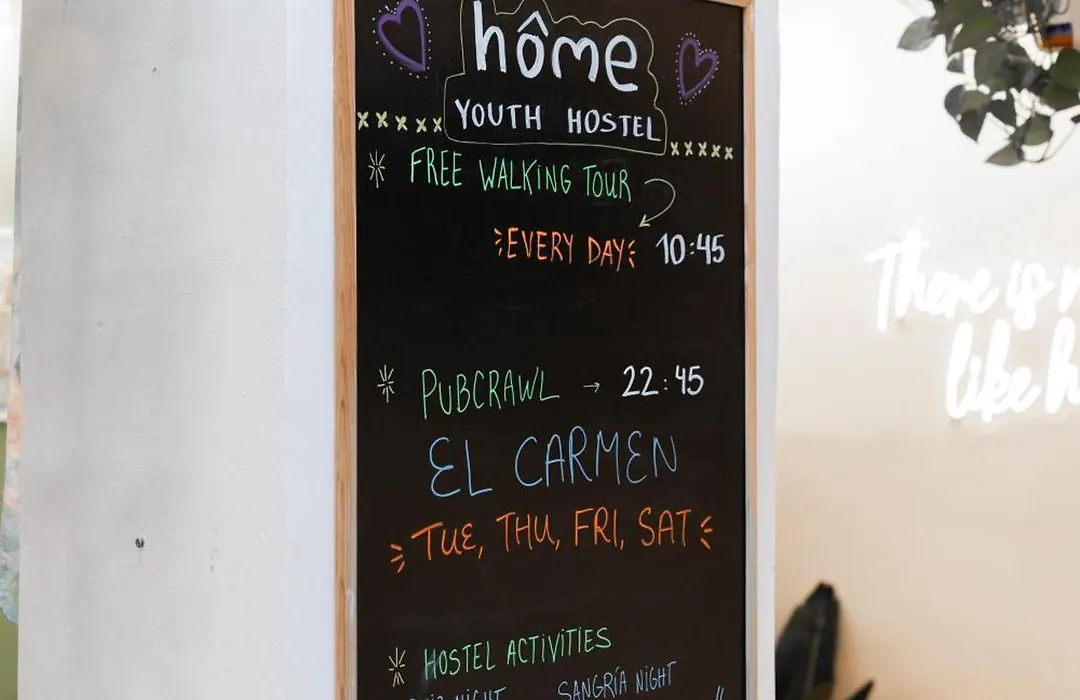 hôme
YOUTH HOSTEL
xxxxx xxxxx
FREE WALKING TOUR
EVERY DAY 10:45
PUBCRAWL → 22:45
EL CARMEN
TUE, THU, FRI, SAT
HOSTEL ACTIVITIES
NIGHT SANGRÍA NIGHT
There is
like